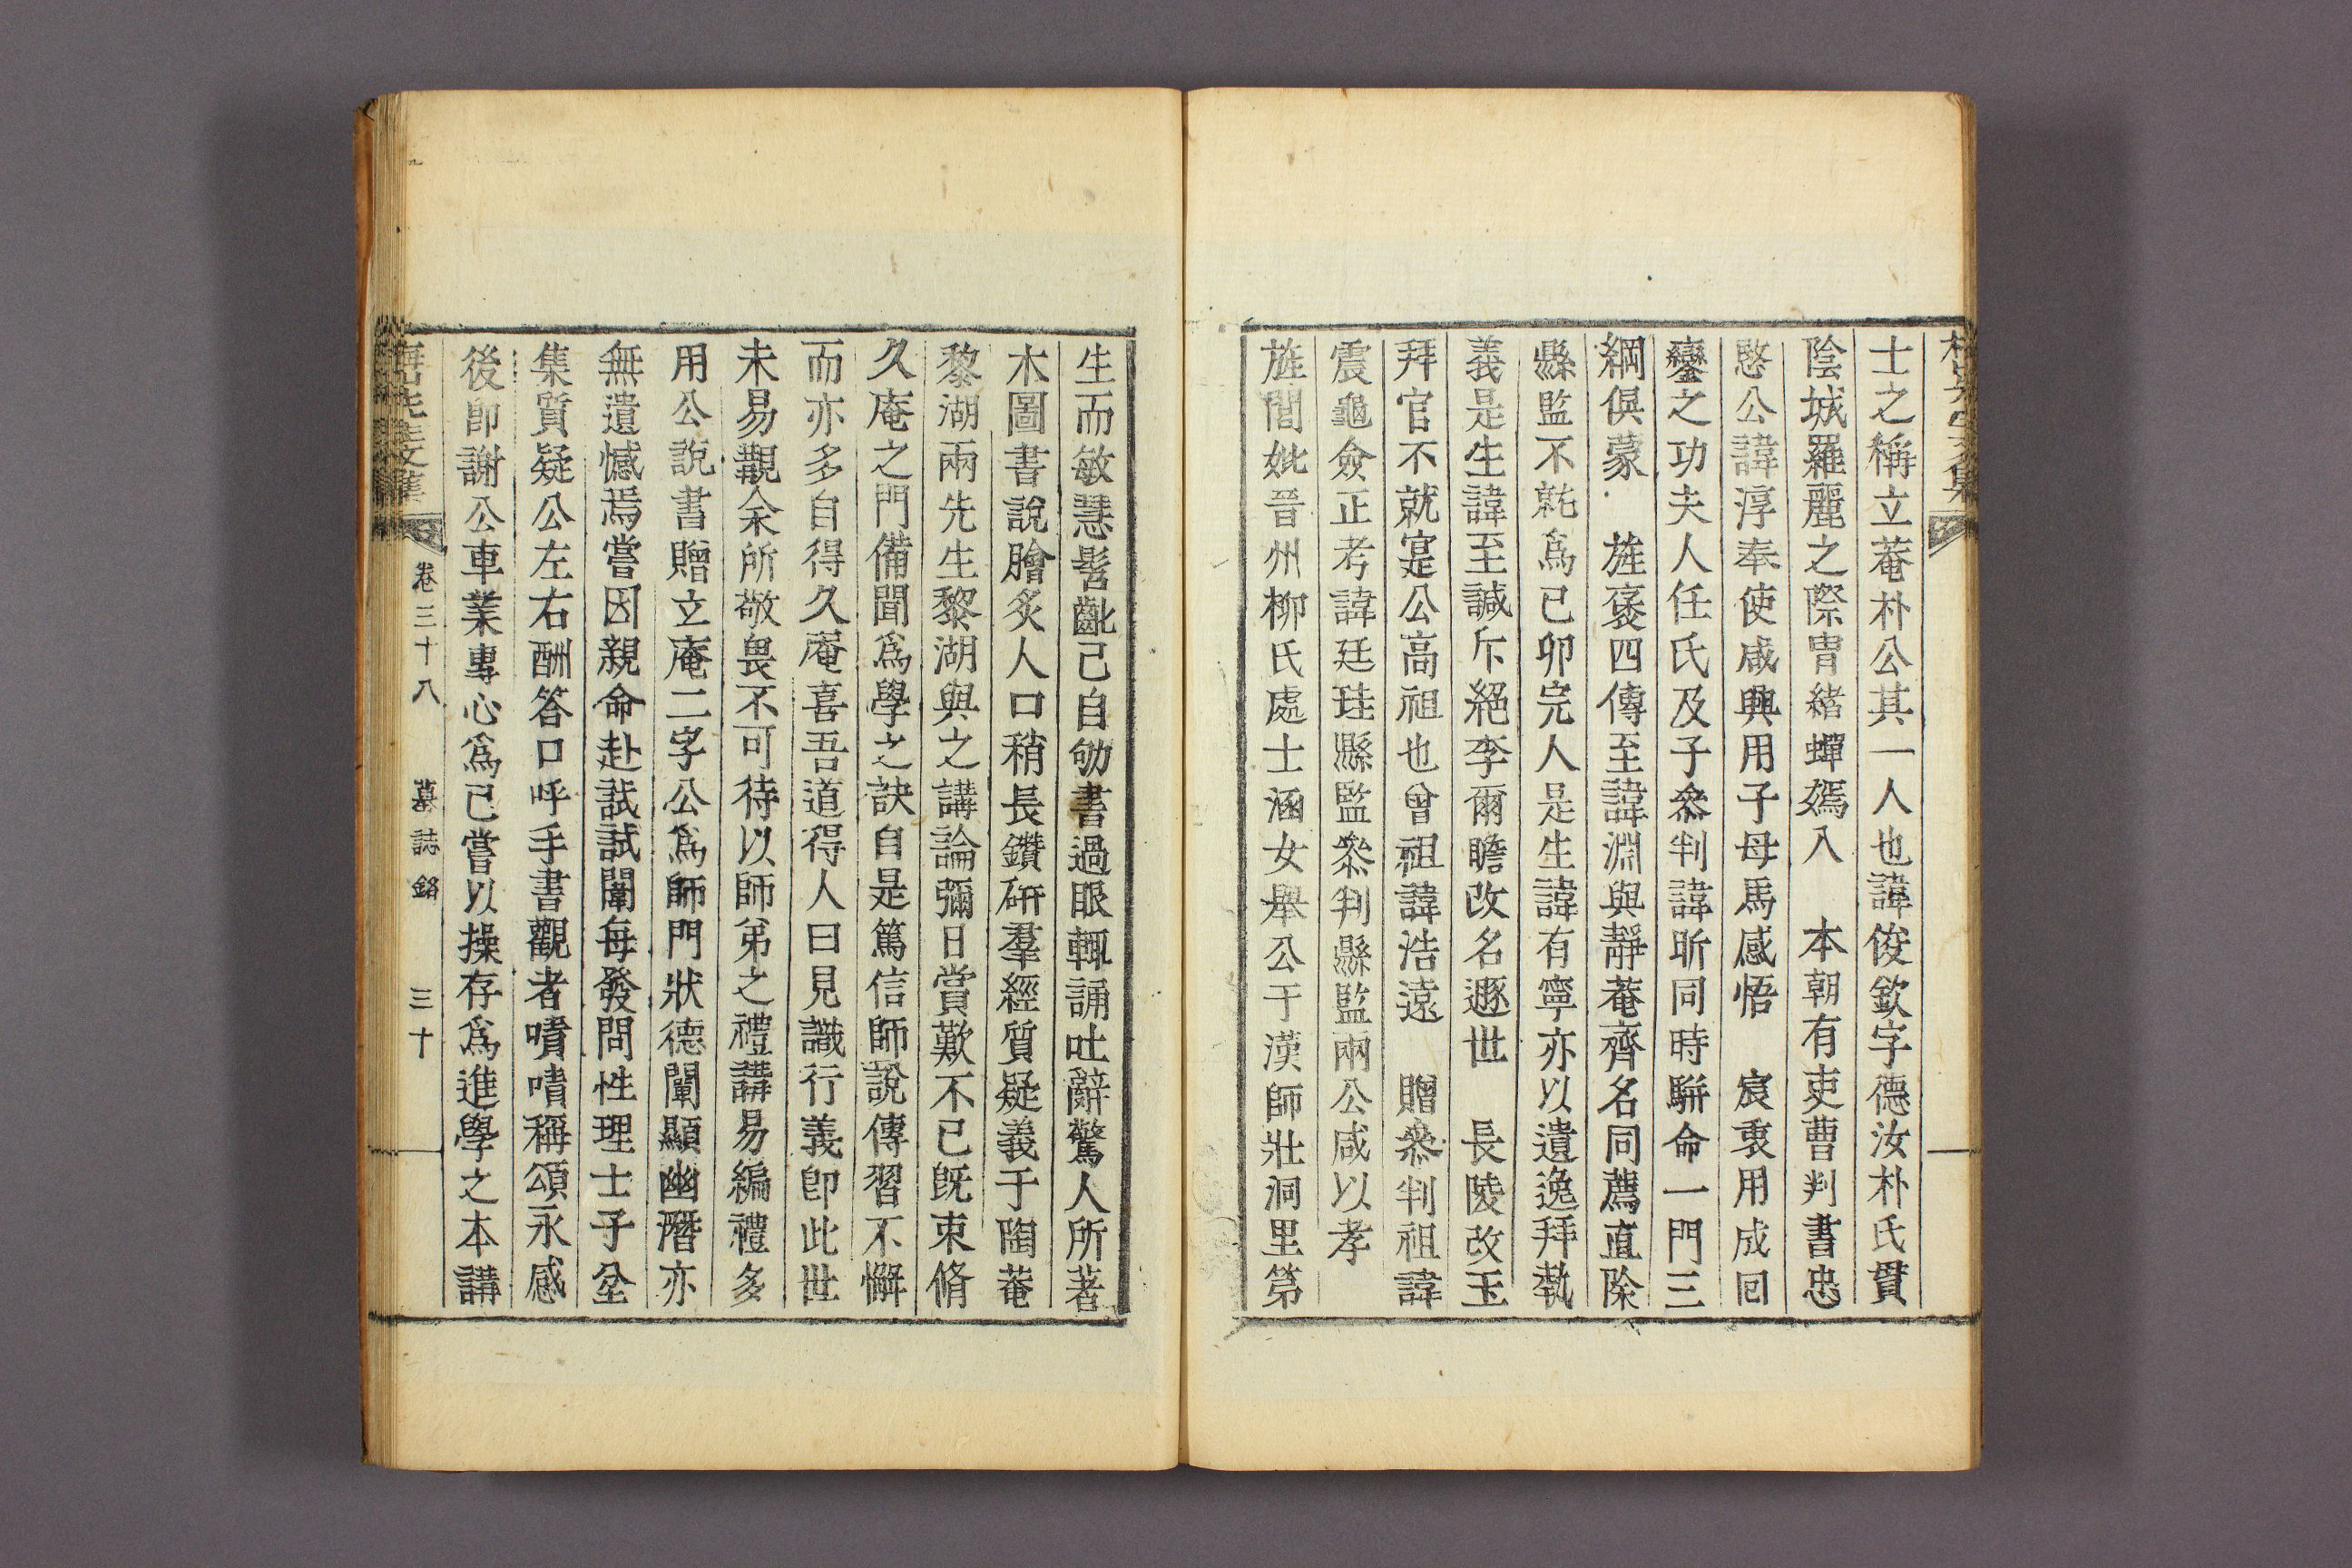 士之稱立菴朴公其一人也諱俊欽字德汝朴氏貫
陰城羅麗之際冑緖蟬嫣入　本朝有吏曹判書忠
愍公諱淳奉使咸興用子母馬感悟　宸衷用成回
鑾之功夫人任氏及子叅判諱昕同時騈命一門三
綱俱蒙　旌褒四傳至諱淵與靜菴齊名同薦直除
縣監不就爲己卯完人是生諱有寧亦以遺逸拜執
義是生諱至諴斥絕李爾瞻改名遯世　長陵改玉
拜官不就寔公高祖也曾祖諱浩遠　贈叅判祖諱
震龜僉正考諱廷珪縣監叅判縣監兩公咸以孝
旌閭妣晉州柳氏處士涵女舉公于漢師壯洞里第
生而敏慧髫齔己自劬書過眼輒誦吐辭驚人所著
木圖書說膾炙人口稍長鑽硏羣經質疑義于陶菴
黎湖兩先生黎湖與之講論彌日賞歎不已旣束脩
久庵之門備聞爲學之訣自是篤信師說傳習不懈
而亦多自得久庵喜吾道得人曰見識行義卽此世
未易覯余所敬畏不可待以師弟之禮講易編禮多
用公說書贈立庵二字公爲師門狀德闡顯幽潛亦
無遺憾焉嘗因親命赴試試闈每發問性理士子坌
集質疑公左右酬答口呼手書觀者嘖嘖稱頌永感
後卽謝公車業專心爲己嘗以操存爲進學之本講
卷三十八　墓誌銘　三十